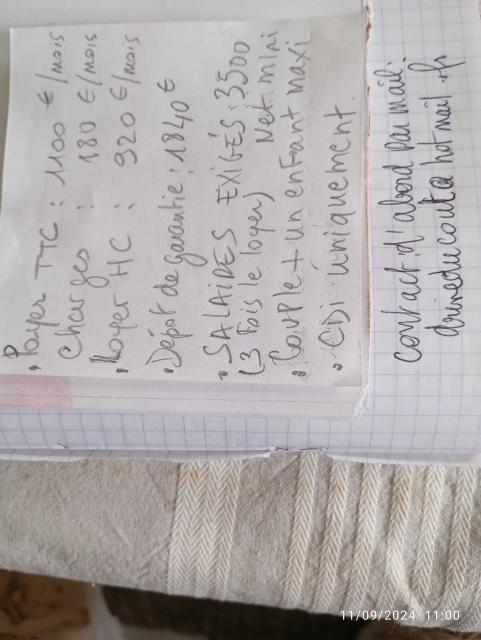 • Loyer TTC : 1100 €/mois
Charges : 180 €/mois
• Loyer HC : 920 €/mois
• Dépôt de garantie : 1840 €
• SALAIRES EXIGÉS : 3500
(3 fois le loyer) Net mini
• Couple + un enfant maxi
• CDI Uniquement.
contact d'abord par mail :
hotmail.fr
11/09/2024 11:00